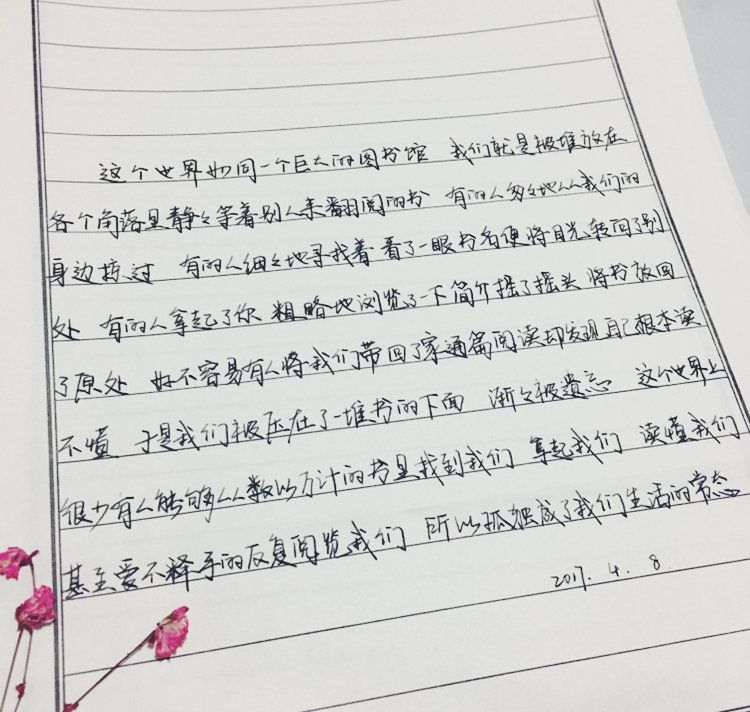 这个世界如同一个巨大的图书馆 我们就是被堆放在
各个角落里静々等着别人来翻阅的书 有的人匆々地从我们的
身边掠过 有的人细々地寻找着 看了一眼书名便将目光转回了别
处 有的人拿起了你 粗略地浏览了一下简介摇了摇头 将书放回
了原处 好不容易有人将我们带回了家通篇阅读却发现自己根本读
不懂 于是我们被压在了一堆书的下面 渐々被遗忘 这个世界上
很少有人能够从数以万计的书里找到我们 拿起我们 读懂我们
甚至爱不释手的反复阅览我们 所以孤独成了我们生活的常态
2017. 4. 8